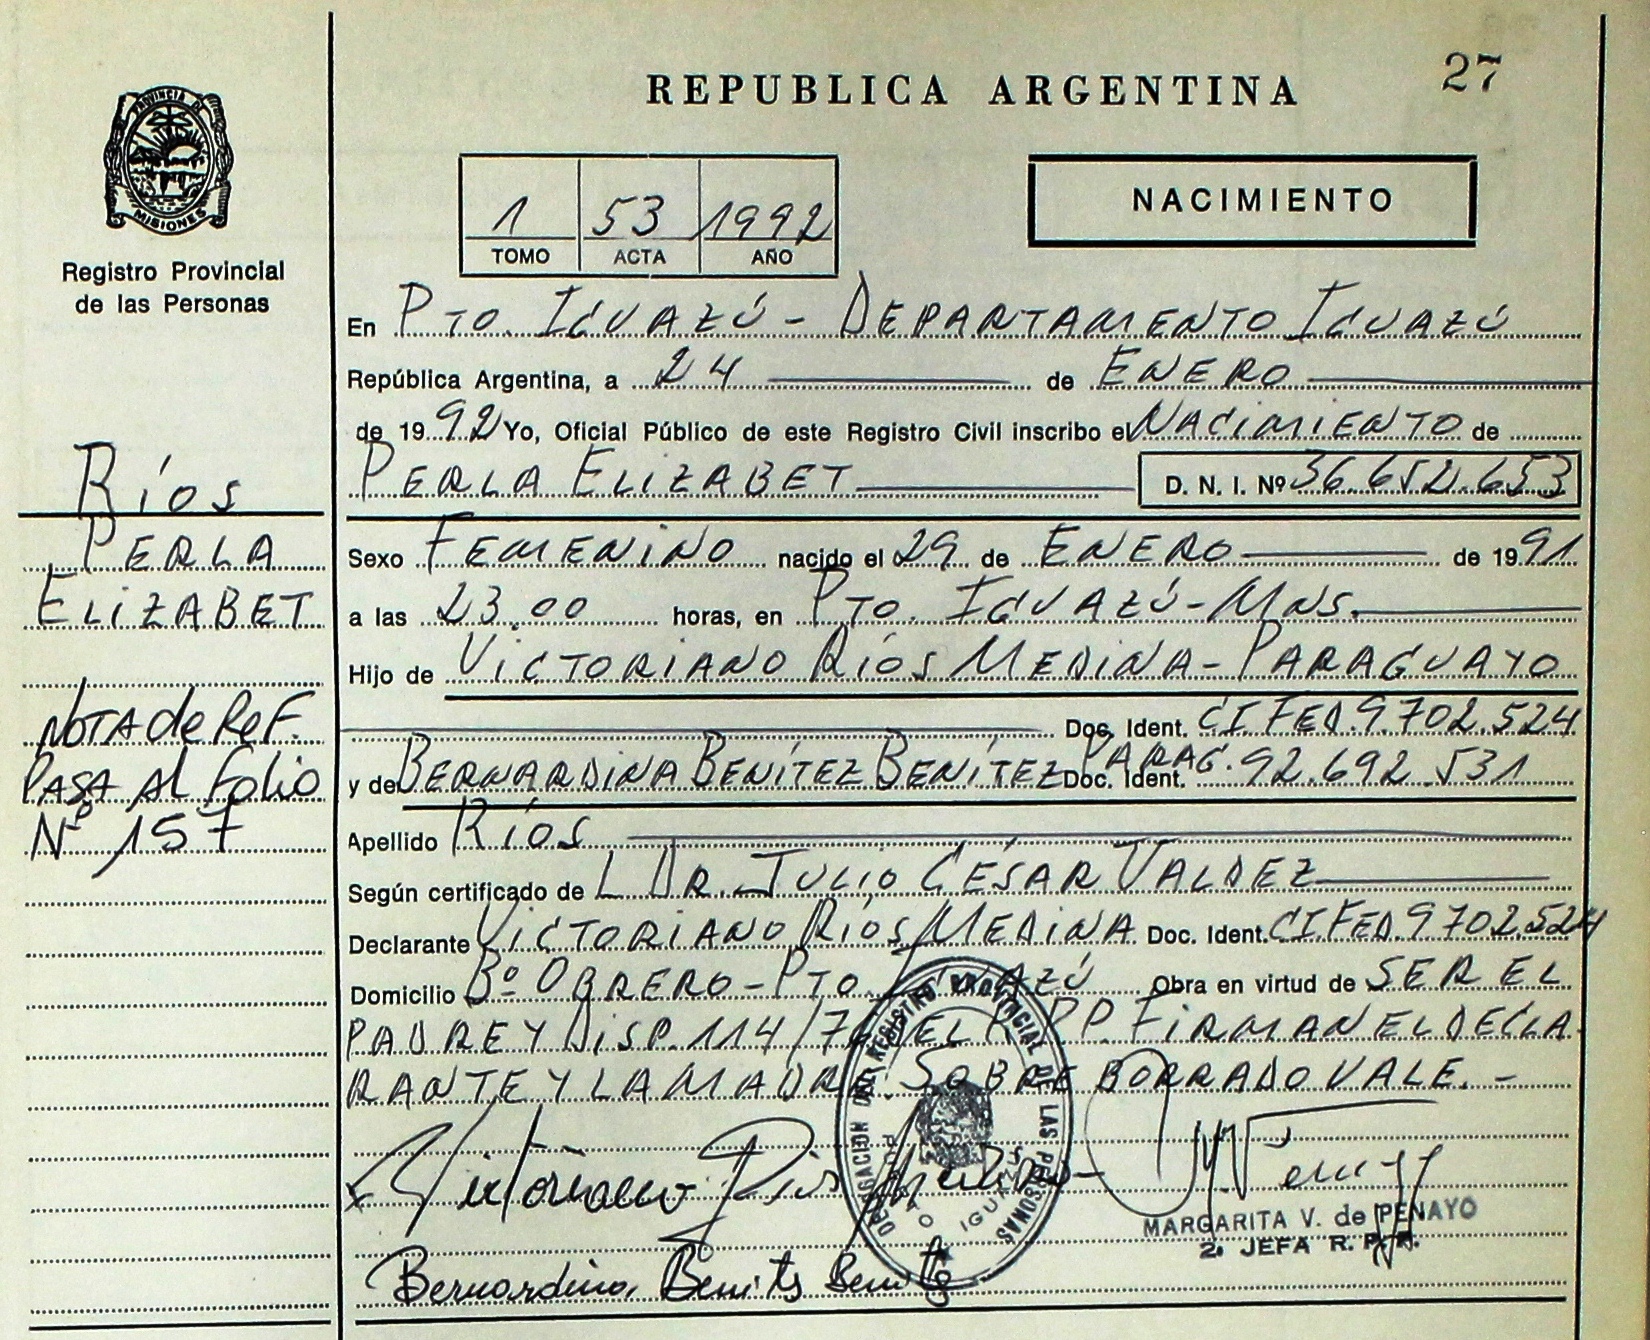 REPUBLICA ARGENTINA
27
PROVINCIA DE
MISIONES
Registro Provincial
de las Personas
1 53 1992
TOMO ACTA AÑO
NACIMIENTO
En PTO. IGUAZÚ - DEPARTAMENTO IGUAZÚ
República Argentina, a 24 de ENERO
de 1992 Yo, Oficial Público de este Registro Civil inscribo el NACIMIENTO de
PERLA ELIZABET D. N. I. Nº 36.652.653
Sexo FEMENINO nacido el 29 de ENERO de 1991
a las 23.00 horas, en PTO. IGUAZÚ - MNS.
Hijo de VICTORIANO RÍOS MEDINA - PARAGUAYO
Doc. Ident. CI FED. 9.702.524
y de BERNARDINA BENÍTEZ BENÍTEZ PARAG. Doc. Ident. 92.692.531
Apellido RÍOS
Según certificado de L DR. JULIO CÉSAR VALDEZ
Declarante VICTORIANO RÍOS MEDINA Doc. Ident. CI FED. 9702.524
Domicilio Bº OBRERO - PTO. IGUAZÚ Obra en virtud de SER EL
PADRE Y DISP. 114/76 DEL R.P.P. FIRMAN EL DECLA
RANTE Y LA MADRE. SOBRE BORRADO VALE. -
RÍOS
PERLA
ELIZABET
NOTA de REF.
PASA Al Folio
Nº 157
Victoriano Rios Medina
Bernardina Benits Benits
DELEGACION DEL REGISTRO PROVINCIAL DE LAS PERSONAS
PUERTO IGUAZU
MARGARITA V. de PENAYO
2. JEFA R. P. P.